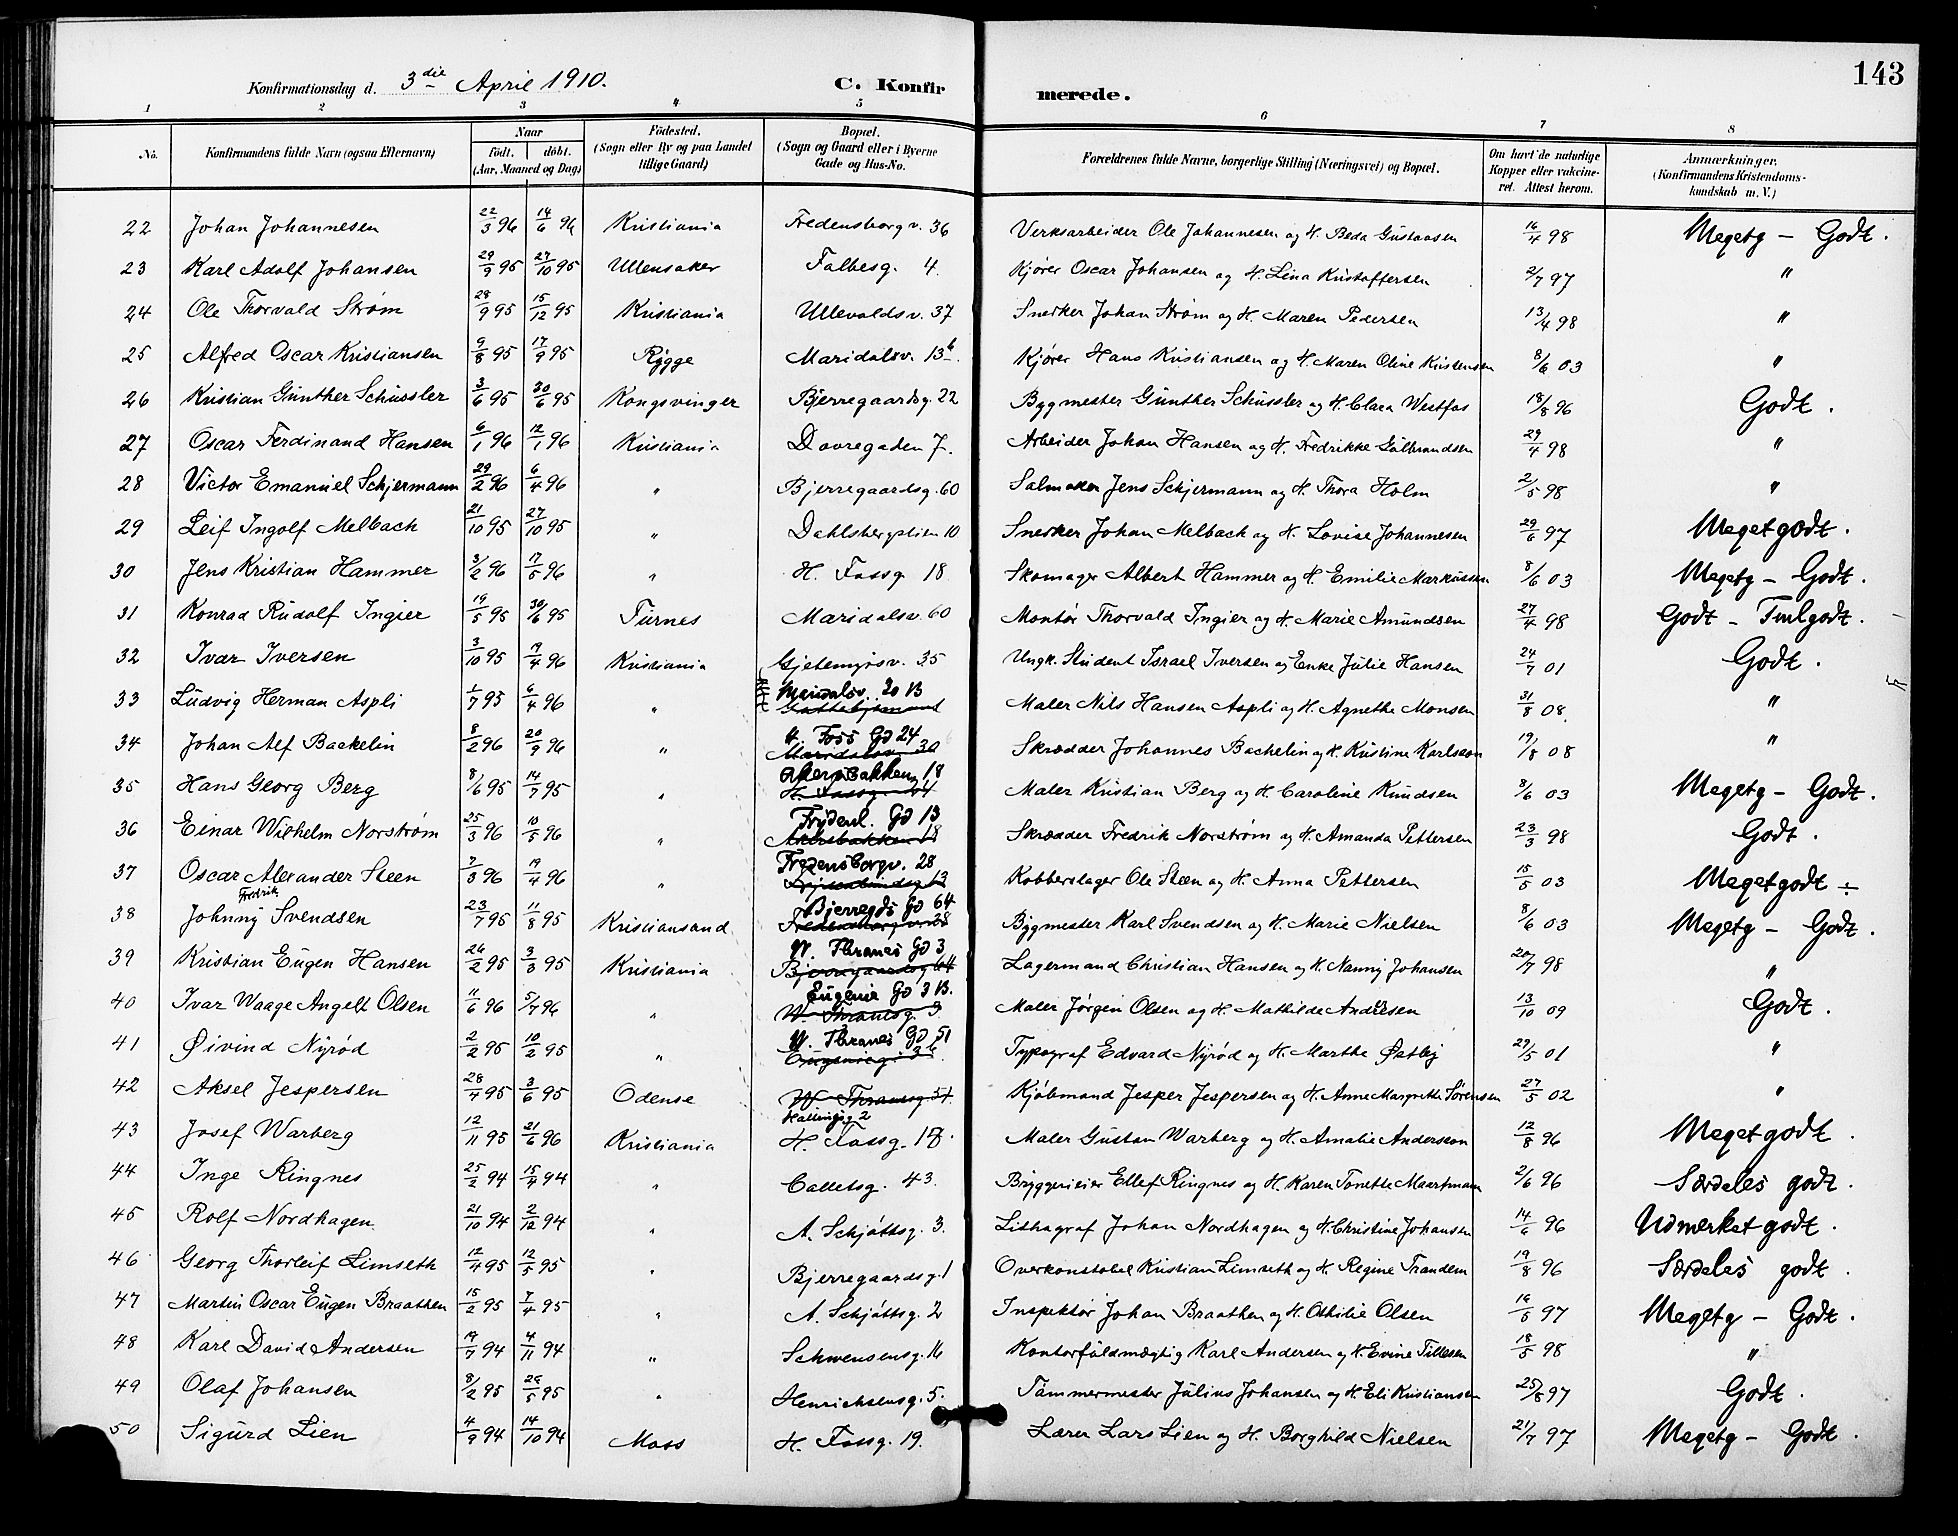 143
Konfirmationsdag d. 3die April 1910. C. Konfirmerede.
1 2 3 4 5 6 7 8
No. Konfirmandens fulde Navn (ogsaa Efternavn) Naar født. døbt. (Aar, Maaned og Dag) Fødested. (Sogn eller By og paa Landet tillige Gaard) Bopæl. (Sogn og Gaard eller i Byerne Gade og Hus-No. Forældrenes fulde Navne, borgerlige Stilling (Næringsvei) og Bopæl. Om havt de naturlige Kopper eller vakcineret. Attest herom. Anmærkninger. (Konfirmandens Kristendomskundskab m. V.)
22 Johan Johannesen 22/3 96 14/6 96 Kristiania Fredensborgv. 36 Verksarbeider Ole Johannesen og H. Beda Gustavsen 16/4 98 Megetg - Godt.
23 Karl Adolf Johansen 29/9 95 27/10 95 Ullensaker Falbesg. 4. Kjører Oscar Johansen og H. Lina Kustaffersen 2/7 97 "
24 Ole Thorvald Strøm 28/9 95 15/12 95 Kristiania Ullevoldsv. 37 Snedker Johan Strøm og H. Maren Pedersen 13/4 98 "
25 Alfred Oscar Kristiansen 9/8 95 17/9 95 Rygge Maridalsv. 13b. Kjører Hans Kristiansen og H. Maren Oline Kristensen 8/6 03 "
26 Kristian Günther Schüssler 3/6 95 30/6 95 Kongsvinger Bjerregaardsg. 22 Bygmester Günther Schüssler og H. Clara Westfos 18/8 96 Godt.
27 Oscar Ferdinand Hansen 6/1 96 12/1 96 Kristiania Dovregaden 7. Arbeider Johan Hansen og H. Fredrikke Gulbrandsen 29/4 98 "
28 Victor Emanuel Schjermann 29/2 96 6/4 96 " Bjerregaardsg. 60 Salmaker Jens Schjermann og H. Thora Holm 2/5 98 "
29 Leif Ingolf Melbach 21/10 95 27/10 95 " Dahlsbergstien 10 Snedker Johan Melbach og H. Lovise Johannesen 29/6 97 Megetgodt.
30 Jens Kristian Hammer 3/2 96 17/5 96 " H. Fossg. 18 Skomager Albert Hammer og H. Emilie Markussen 8/6 03 Megetg - Godt.
31 Konrad Rudolf Ingier 19/5 95 30/6 95 Furnes Maridalsv. 60 Montør Thorvald Ingier og H. Marie Amundsen 27/4 98 Godt - Temlgodt.
32 Ivar Iversen 3/10 95 7/4 96 Kristiania Gjetemyrsv. 35 Ungk. Student Israel Iversen og Enke Julie Hansen 24/7 01 Godt.
33 Ludvig Herman Aspli 1/7 95 6/4 96 " Maridalsv. 30 B Maler Nils Hansen Aspli og H. Agnethe Monsen 31/8 08. "
34 Johan Alf Backelin 8/2 96 20/9 96 " H. Foss Gd 24 Maridalsv. 30 Skrædder Johannes Bachelin og H. Kristine Karlsson 19/8 08 "
35 Hans Georg Berg 8/6 95 14/7 95 " Akersbakken 18 H. Fossg. 24 Maler Kristian Berg og H. Caroline Knudsen 8/6 03 Megetg - Godt.
36 Einar Wilhelm Norstrøm 25/3 96 10/5 96 " Frydenl. Gd 13 Akersbakken 18 Skrædder Fredrik Norstrøm og H. Amanda Pettersen 23/3 98 Godt.
37 Oscar Alexander Steen 7/3 96 19/4 96 " Fredensborgv. 28 Frydenlundsg 13 Kobberslager Ole Steen og H. Anna Pettersen 15/5 03 Megetgodt ÷
38 Johnny Fredrik Svendsen 23/7 95 11/8 95 Kristiansand Bjerregds Gd 64 Fredensborgv. 28 Bygmester Karl Svendsen og H. Marie Nielsen 8/6 03 Megetg - Godt.
39 Kristian Eugen Hansen 26/2 95 3/3 95 Kristiania W. Thranes Gd 3 Bjerregaardsg 64 Lagermand Christian Hansen og H. Nanny Johansen 20/7 98 "
40 Ivar Waage Angelt Olsen 11/6 96 5/7 96 " Eugenie Gd 3 B. W. Thranesg. 3 Maler Jørgen Olsen og H. Mathilde Andersen 13/10 09 Godt.
41 Øivind Nyrød 2/2 95 10/2 95 " W. Thranes Gd 51 Eugenieg. 3b Typograf Edvard Nyrød og H. Marthe Østby 29/5 01 "
42 Aksel Jespersen 28/4 95 3/6 95 Odense W. Thranesg. 51. Hallingsg 2 Kjøbmand Jesper Jespersen og H. Anne Margrethe Sørensen 27/5 02 "
43 Josef Warberg 12/11 95 21/6 96 Kristiania H. Fossg. 18. Maler Gustav Warberg og H. Amalie Andersson 12/8 96 Megetgodt.
44 Inge Ringnes 25/2 94 15/4 94 " Colletsg. 43. Bryggerieier Ellef Ringnes og H. Karen Tonette Maartmann 2/6 96 Særdeles godt.
45 Rolf Nordhagen 21/10 94 2/12 94 " A. Schjøttsg. 3. Lithograf Johan Nordhagen og H. Christine Johansen 14/6 96 Udmerket godt.
46 Georg Thorleif Limseth 12/4 95 12/5 95 " Bjerregaardsg. 1 Overkonstabel Kristian Limseth og H. Regine Trandem 19/8 96 Særdeles godt.
47 Martin Oscar Eugen Braathen 15/2 95 7/4 95 " A. Schjøttsg. 2 Inspektør Johan Braathen og H. Othilie Olsen 16/5 97 Megetg - Godt.
48 Karl David Andersen 19/7 94 4/11 94 " Schwensensg. 16 Kontorfuldmægtig Karl Andersen og H. Evine Tillesen 18/5 98 "
49 Olaf Johansen 8/2 95 26/5 95 " Henrichsensg. 5. Tømmermester Julius Johansen og H. Eli Kristiansen 25/8 97 Godt.
50 Sigurd Lien 4/9 94 14/10 94 Moss H. Fossg. 19. Lærer Lars Lien og H. Borghild Nielsen 21/7 97 Megetg - Godt.